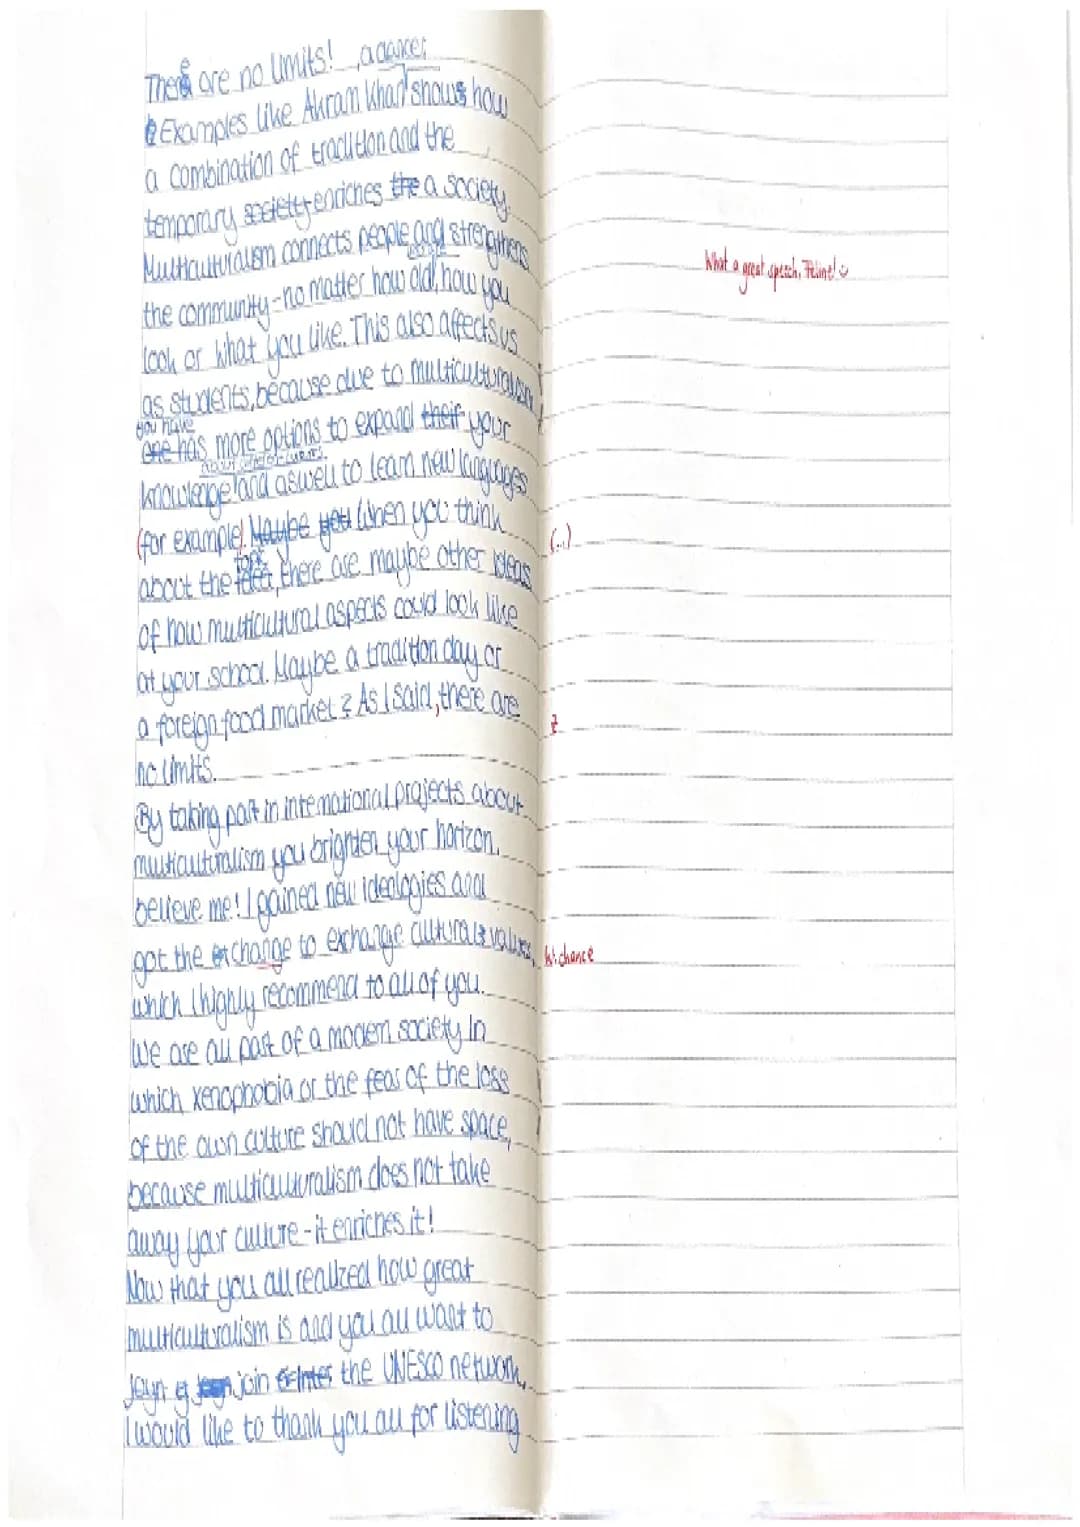 There are no limits! , a dancer,
Examples like Akram Khan shows how
a combination of tradition and the
temporary society enriches the a society.
Multiculturalism connects people and strengthens
the community - no matter how old, how you
look or what you like. This also affects us
as students, because due to multiculturalism
you have
one has more options to expand their your
about different cultures
knowledge and aswell to learn new languages
(for example). Maybe you When you think (...)
topic
about the fact, there are maybe other ideas
of how multicultural aspects could look like
at your school. Maybe a tradition day or
a foreign food market? As I said, there are
no limits.
By taking part in international projects about
multiculturalism you brighten your horizon,
believe me! I gained new ideologies and
got the exchange to exchange cultural values, W: chance
which I highly recommend to all of you.
We are all part of a modern society in
which xenophobia or the fear of the loss
of the own culture should not have space,
because multiculturalism does not take
away your culture - it enriches it!
Now that you all realized how great
multiculturalism is and you all want to
join the UNESCO network,
I would like to thank you all for listening
What a great speech, Feline!